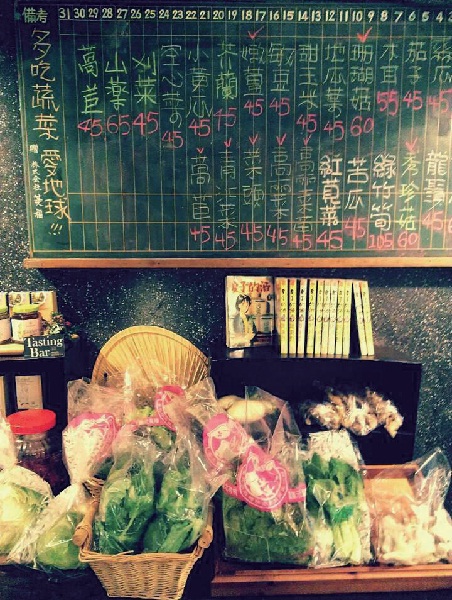 備考 31 30 29 28 27 26 25 24 23 22 21 20 19 18 17 16 15 14 13 12 11 10 9 8 7 6 5 4
多吃蔬菜愛地球!!!
萵苣 45
山藥 65
刈菜 45
空心菜 45
小黃瓜 45
芥蘭 45
45
豌豆 45
甜玉米 45
地瓜葉 45
珊瑚菇 60
木耳 55
茄子 45
絲瓜 45
萵苣 45
青江菜 45
菜頭 45
高麗菜 45
45
紅莧菜 45
苦瓜 45
綠竹筍 105
秀珍菇 60
龍鬚 45
Tasting Bar